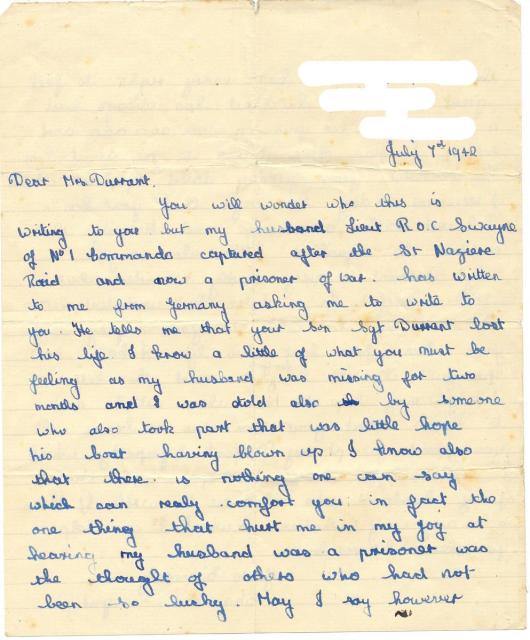 July 7st 1942
Dear Mrs Durrant,
You will wonder who this is
writing to you but my husband Lieut R.O.C Swayne
of No 1 Commando captured after the St Naziere
Raid and now a prisoner of war. has written
to me from Germany asking me to write to
you. He tells me that your son Sgt Durrant lost
his life. I know a little of what you must be
feeling as my husband was missing for two
months and I was told also by someone
who also took part that was little hope
his boat having blown up I know also
that there is nothing one can say
which can realy comfort you in fact the
one thing that hurt me in my joy at
hearing my husband was a prisoner was
the thought of others who had not
been so lucky. May I say however